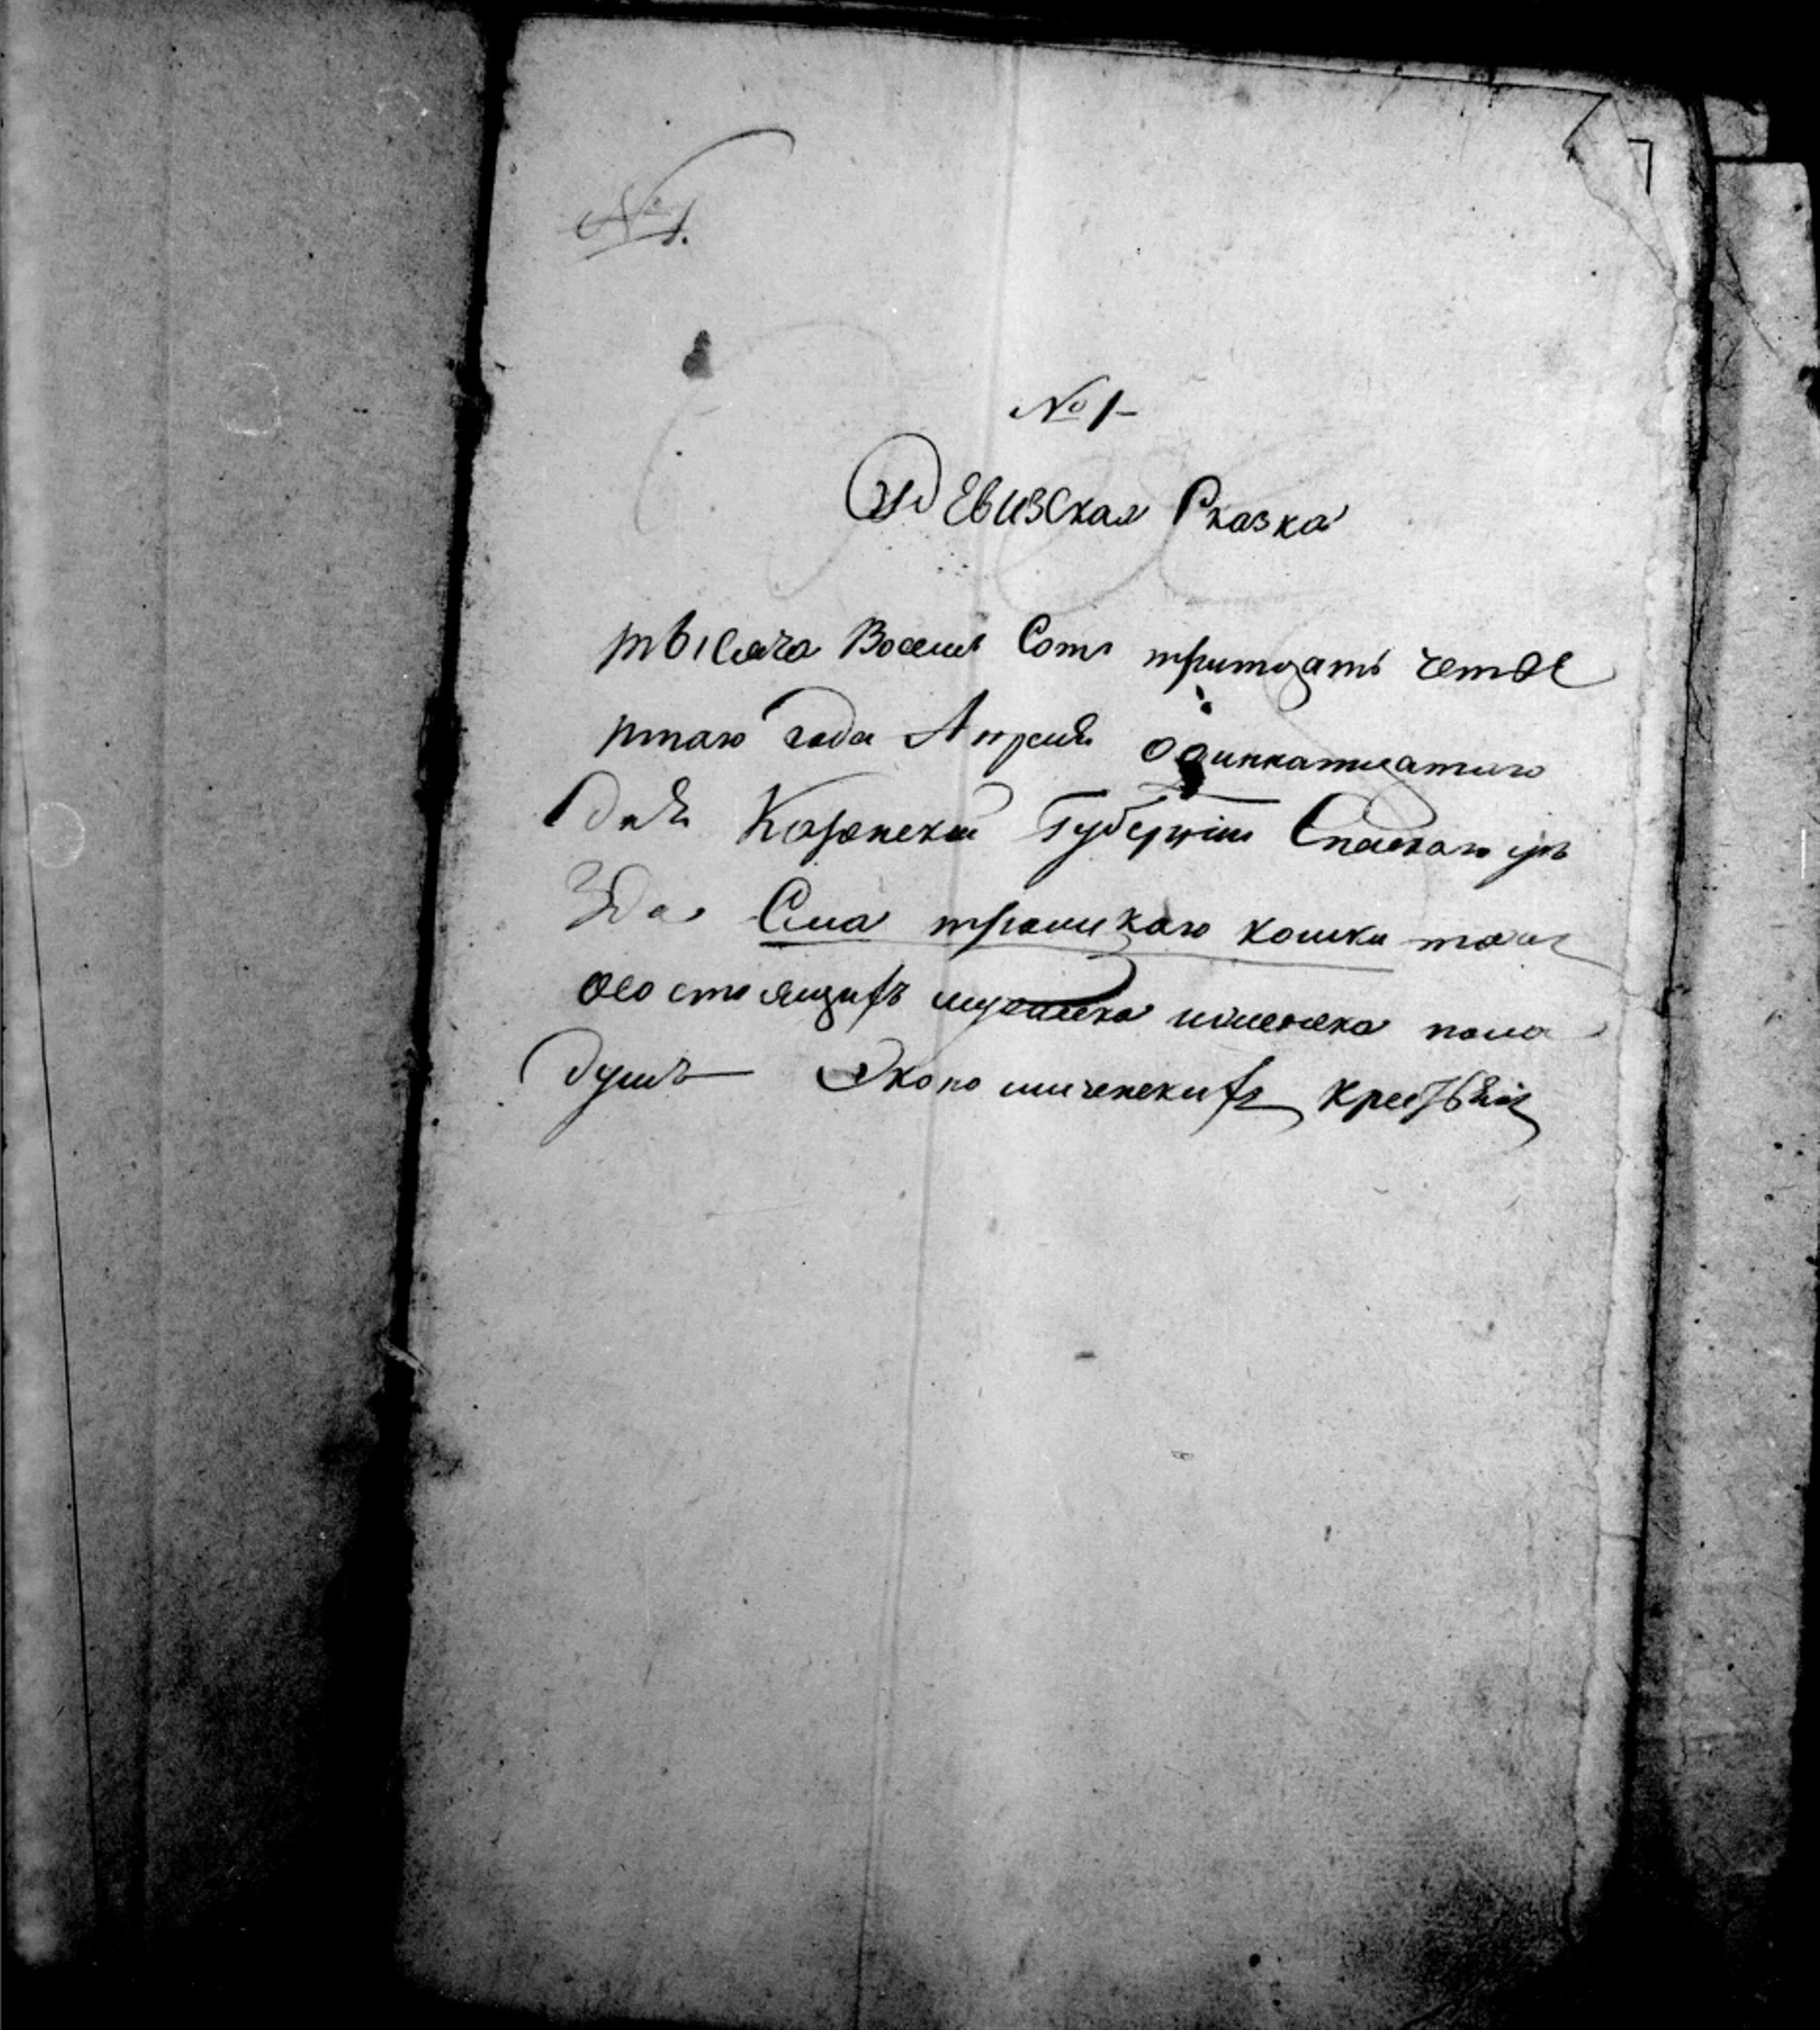 7
№ 1.
№ 1
Ревизская Сказка
тысяча Восемь Сотъ тритцать четве
ртаго года Апреля одиннатцатаго
дня Казанской Губернiи Спаскаго уѣ
зда Села троицкаго кошки тожъ
о состоящихъ мужеска и женска пола
душъ Экономическихъ крестьянъ